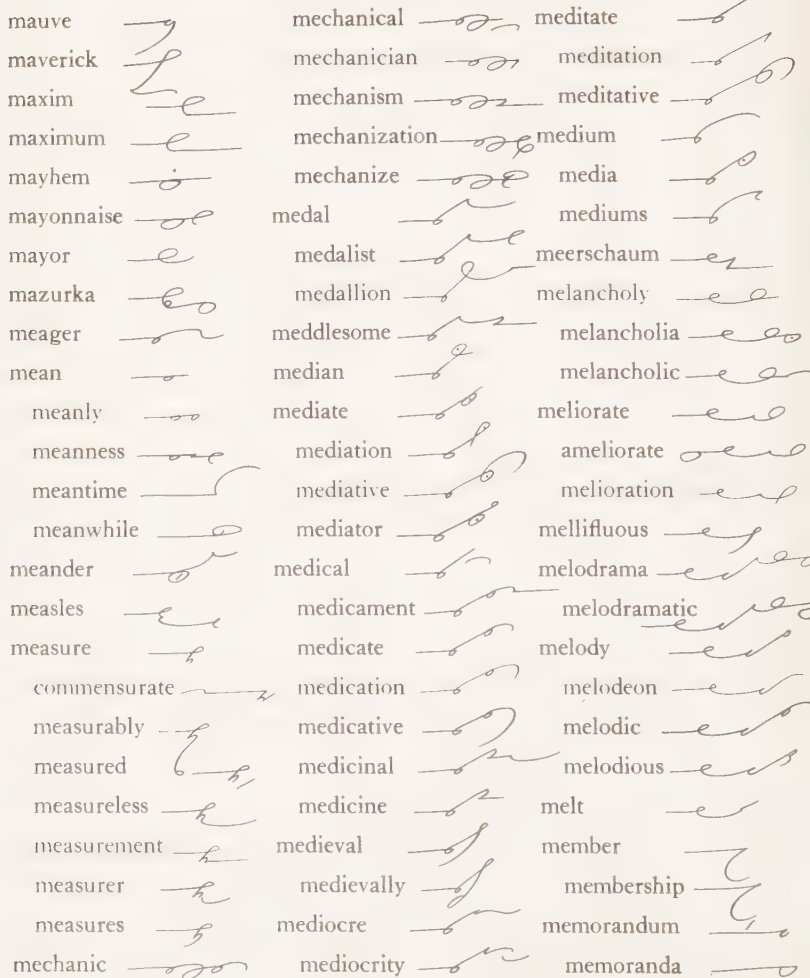 mauve
maverick
maxim
maximum
mayhem
mayonnaise
mayor
mazurka
meager
mean
meanly
meanness
meantime
meanwhile
meander
measles
measure
commensurate
measurably
measured
measureless
measurement
measurer
measures
mechanic
mechanical
mechanician
mechanism
mechanization
mechanize
medal
medalist
medallion
meddlesome
median
mediate
mediation
mediative
mediator
medical
medicament
medicate
medication
medicative
medicinal
medicine
medieval
medievally
mediocre
mediocrity
meditate
meditation
meditative
medium
media
mediums
meerschaum
melancholy
melancholia
melancholic
meliorate
ameliorate
melioration
mellifluous
melodrama
melodramatic
melody
melodeon
melodic
melodious
melt
member
membership
memorandum
memoranda